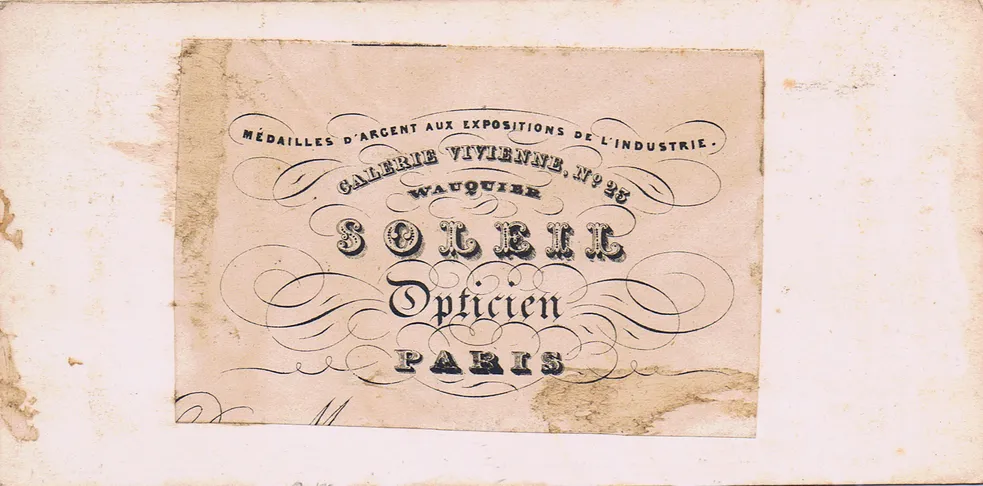 MÉDAILLES D'ARGENT AUX EXPOSITIONS DE L'INDUSTRIE.
GALERIE VIVIENNE, Nº 23
WAUQUIER
SOLEIL
Opticien
PARIS